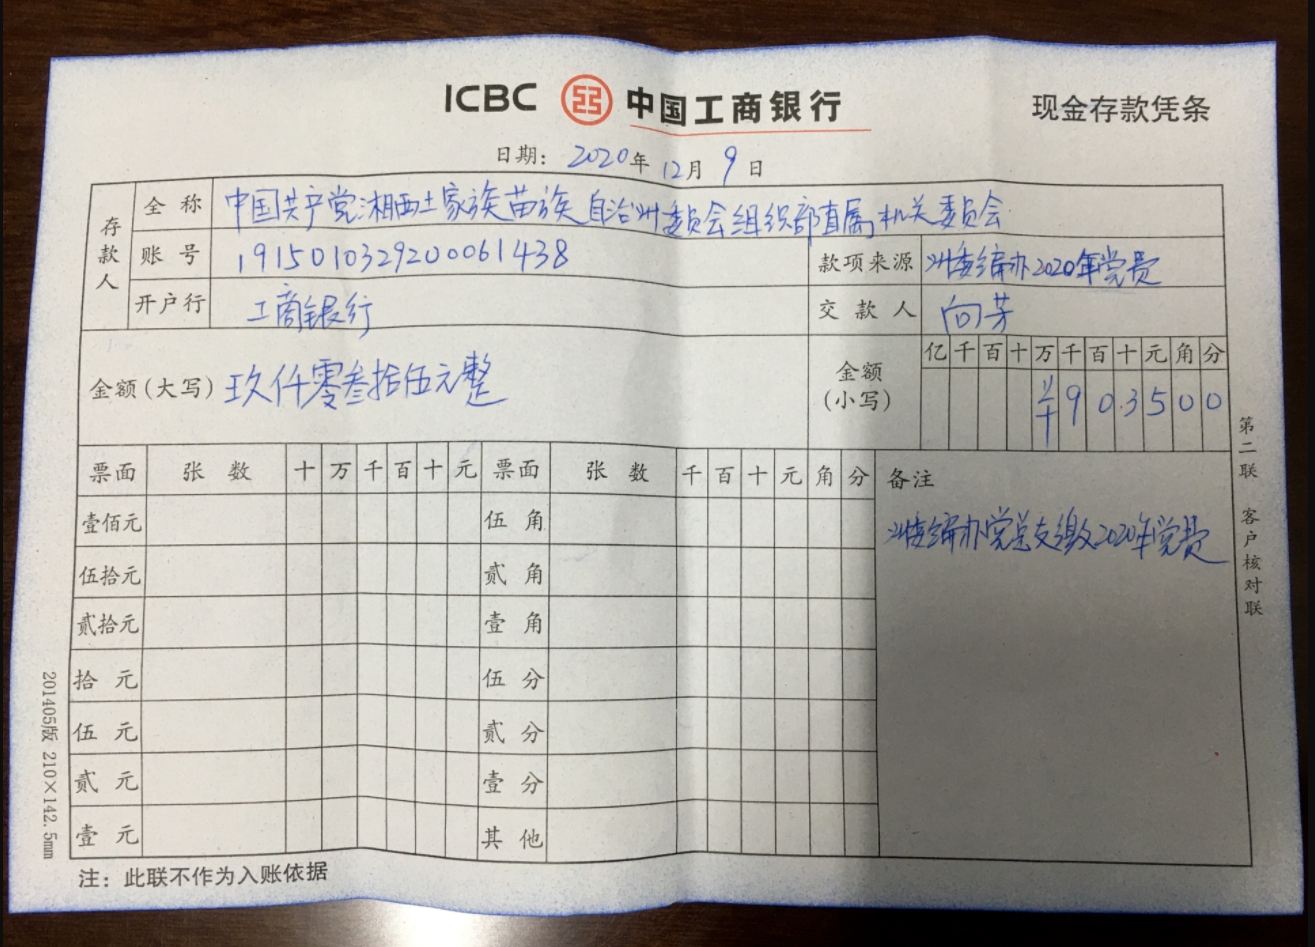 ICBC 中国工商银行
现金存款凭条
日期： 2020年 12月 9日
存款人
全称 中国共产党湘西土家族苗族自治州委员会组织部直属机关委员会
账号 1915010329200061438
款项来源 州委编办2020年党费
开户行 工商银行
交款人 向芳
金额(大写) 玖仟零叁拾伍元整
金额(小写)
亿 千 百 十 万 千 百 十 元 角 分
¥ 9 0 3 5 0 0
票面 张数 十 万 千 百 十 元 票面 张数 千 百 十 元 角 分 备注
壹佰元 伍角
州委编办党总支缴2020年党费
伍拾元 贰角
贰拾元 壹角
拾元 伍分
伍元 贰分
贰元 壹分
壹元 其他
注：此联不作为入账依据
第二联 客户核对联
201405版 210×142.5mm